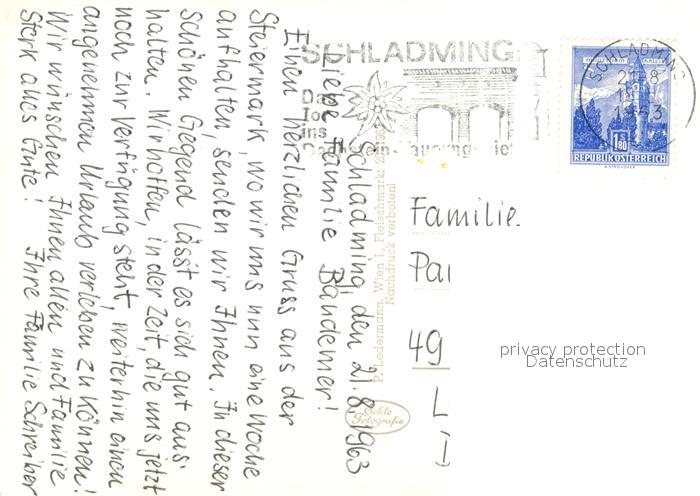 Schladming, den 21.8.1963
Liebe Familie Bandemer!
Einen herzlichen Gruss aus der
Steiermark, wo wir uns nun eine Woche
aufhalten, senden wir Ihnen. In dieser
schönen Gegend lässt es sich gut aus-
halten. Wir hoffen, in der Zeit, die uns jetzt
noch zur Verfügung steht, weiterhin einen
angenehmen Urlaub verleben zu können!
Wir wünschen Ihnen allen und Familie
Sterk alles Gute! Ihre Familie Schreiber
SCHLADMING
Das
Tor
ins
Dachstein-Tauerngebiet
P. Ledermann, Wien I, Fleischmarkt
Nachdruck verboten!
Echte
Fotografie
SCHLADMING
21.8
REPUBLIK ÖSTERREICH
1.80
Familie
Pa
49
L
privacy protection
Datenschutz